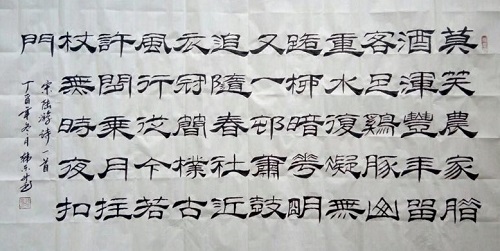 莫笑農家腊
酒渾豐年留
客足鷄豚山
重水復疑無
路柳暗花明
又一邨蕭鼓
追隨春社近
衣冠簡樸古
風存從今若
許閒乘月拄
杖無時夜扣
門
宋陸游詩一首
丁酉年冬月